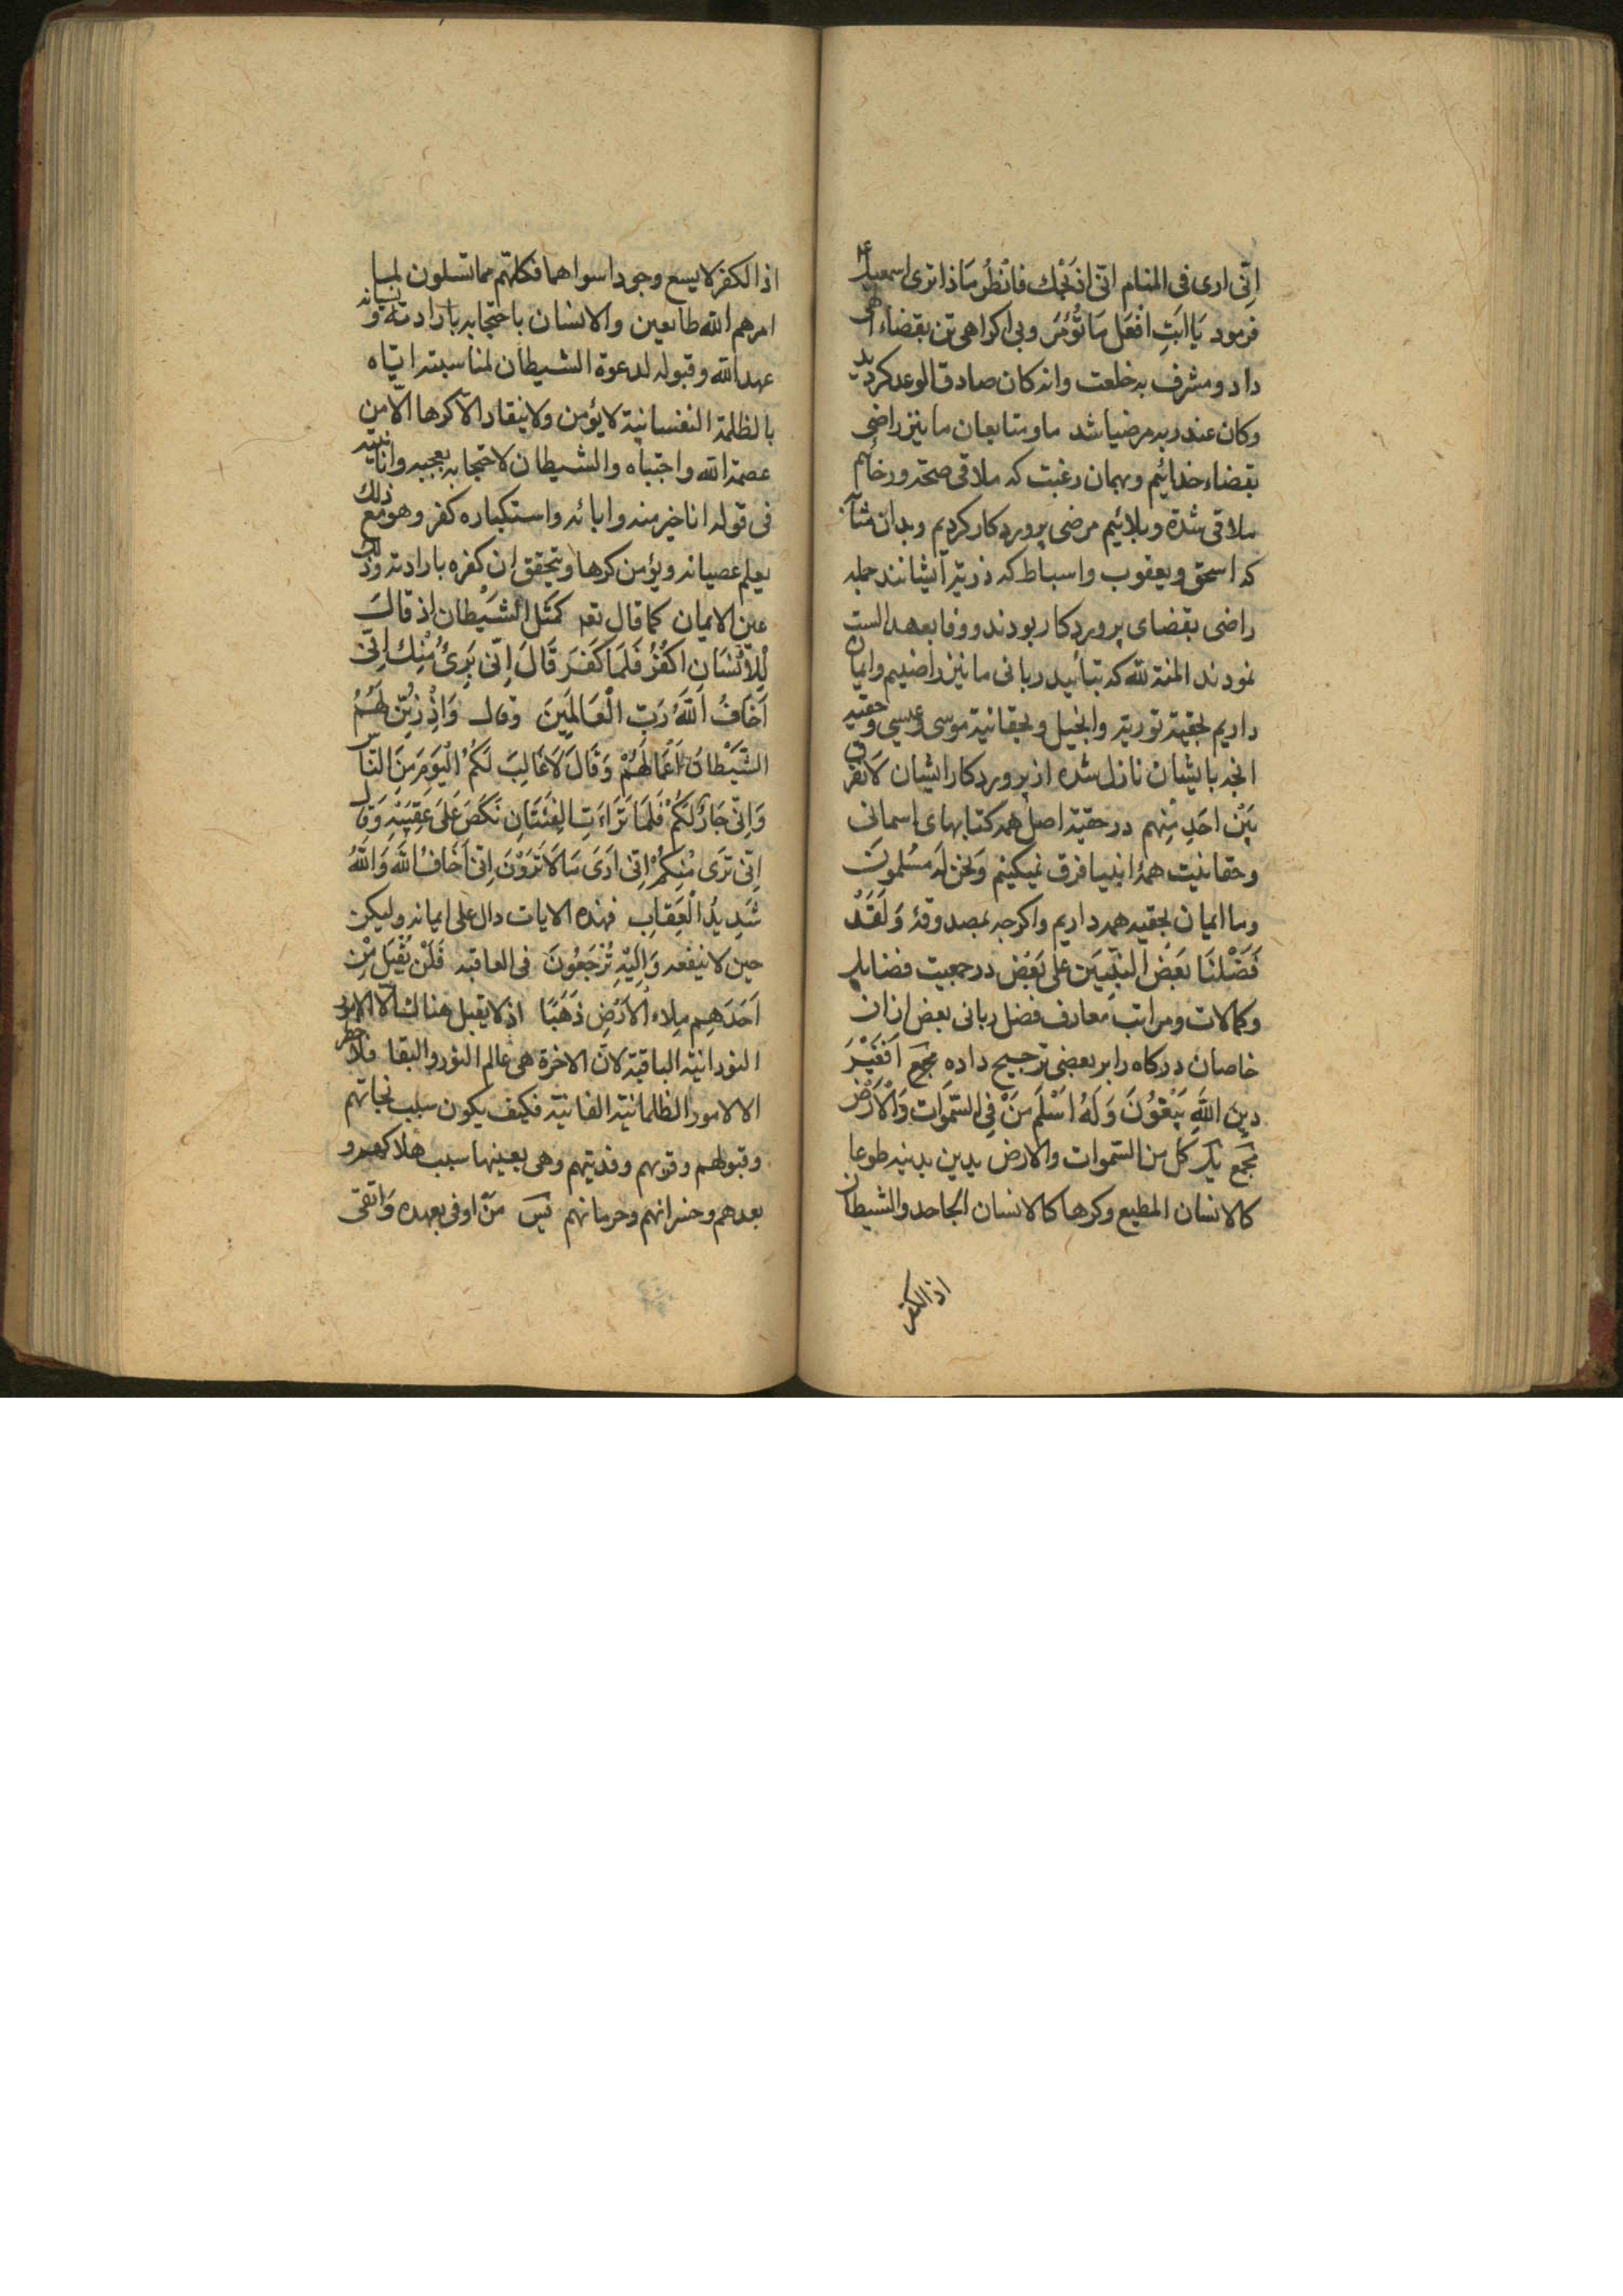 اِنّی اری فی المنام انّی اذبحك فانظُر مَاذا تری اسمعیل ع
فرمود یَا ابتِ افعَل مَا تُؤمَر وبی اکراهی تن بقضاء الهی
داد ومشرف به خلعت وانه کان صادق الوعد کردید
وکان عند ربه مرضیا شد ما ومتابعان ما نیز راضی
بقضاء خدائیم وبهمان رغبت که ملاقی صحة ورخائیم
ملاقی شدة وبلائیم مرضی پروردکار کردیم وبدان
که اسحق ویعقوب واسباط که ذریة ایشانند جمله
راضی بقضای پروردکار بودند ووفا بعهد الست
نمودند المنة لله که بتأیید ربانی ما نیز راضییم وایمان
داریم بحقیة توریة وانجیل وبحقانیة موسی وعیسی وحقیه
انجه بایشان نازل شده از پروردکار ایشان لَا نفرق
بَیْن احَدٍ مِنهم در حقیة اصل همه کتابهای اسمانی
وحقانیت همهٔ انبیا فرق نمیکنیم وَنحن لَه مُسلمونَ
وما ایمان بحقیه همه داریم واکرجه بمصدوقهٔ وَلَقَدْ
فَضَّلنَا بَعضَ النَّبِیّینَ عَلی بَعْضٍ در جمعیت فضایل
وکمالات ومراتب معارف فضل ربانی بعض از ان
خاصان درکاه را بر بعضی ترجیح داده مجمع اَفَغَیْرَ
دِینِ اللّهِ یَبْغُونَ وَلَهُ اَسْلَمَ مَنْ فِی السَّمَوَاتِ وَالْاَرْضِ
مجمع یک کل من السّموات والارض یدین بدینه طوعا
کالانسان المطیع وکرها کالانسان الجاحد والشیطان
اذ الکفر
اذ الکفر لا یسع وجودا سواهما فکلهم مما تسلون لما
امرهم الله طایعین والانسان باحتجابه بارادته ونسیانه
عهد الله وقبوله لدعوة الشیطان لمناسبته ایّاه
بالظلمة النفسانیة لا یؤمن ولا ینقاد الّا کرها الّا من
عصمة الله واجتباه والشیطان لاحتجابه بعجبه وانانیته
فی قوله انا خیر منه وابائه واستکباره کفر وهو مع ذلك
یعلم عصیانه ویؤمن کرها وتحقق ان کفره بارادته وذلك
عین الایمان کما قال تعه کَمَثَل الشَّیْطان اذ قالَ
لِلْاِنْسَانِ اکْفُرْ فَلَمَا کَفَرَ قَالَ اِنّی بَرِیٌٔ مِنْكَ اِنّی
اَخَافُ اللَّهَ رَبّ الْعَالَمِینَ وقال وَاِذْ زَیَّن لَهُمُ
الشَّیْطَانُ اَعْمَالَهُمْ وَقَالَ لَا غَالِبَ لَکُمُ الیَوْمَ مِنَ النَّاسِ
وَاِنّی جَارٌ لَکُمْ فَلَمَا تَرَاءَتِ الفِئَتَانِ نَکَصَ عَلَی عَقِبَیْهِ وَقَالَ
اِنّی بَرَیٌ مِنْکُمْ اِنّی اَرَی مَا لَا تَرَوْنَ اِنّی اَخَافُ اللّهَ وَاللَّهُ
شَدِیدُ الْعِقَابِ فهذه الایات دال علی ایمانه ولیکن
حین لا ینفعه وَاِلَیْهِ تُرْجَعُونَ فی العاقبه فَلَنْ یُقْبَلَ مِنْ
اَحَدِهِم مِلاءُ الْاَرْضِ ذَهَبًا اذ لا یقبل هناك الّا الامور
النورانیّة الباقیة لانّ الاخرة هی عالم النور والبقا فلا خطر
الا لامور الظلمانیّة الفانیّة فکیف یکون سبب نجاتهم
وقبولهم وقربهم وفدیتهم وهی بعینها سبب هلاکهم و
بعدهم وخسرانهم وحرمانهم مَنْ اوفی بعهده وَاتّقی